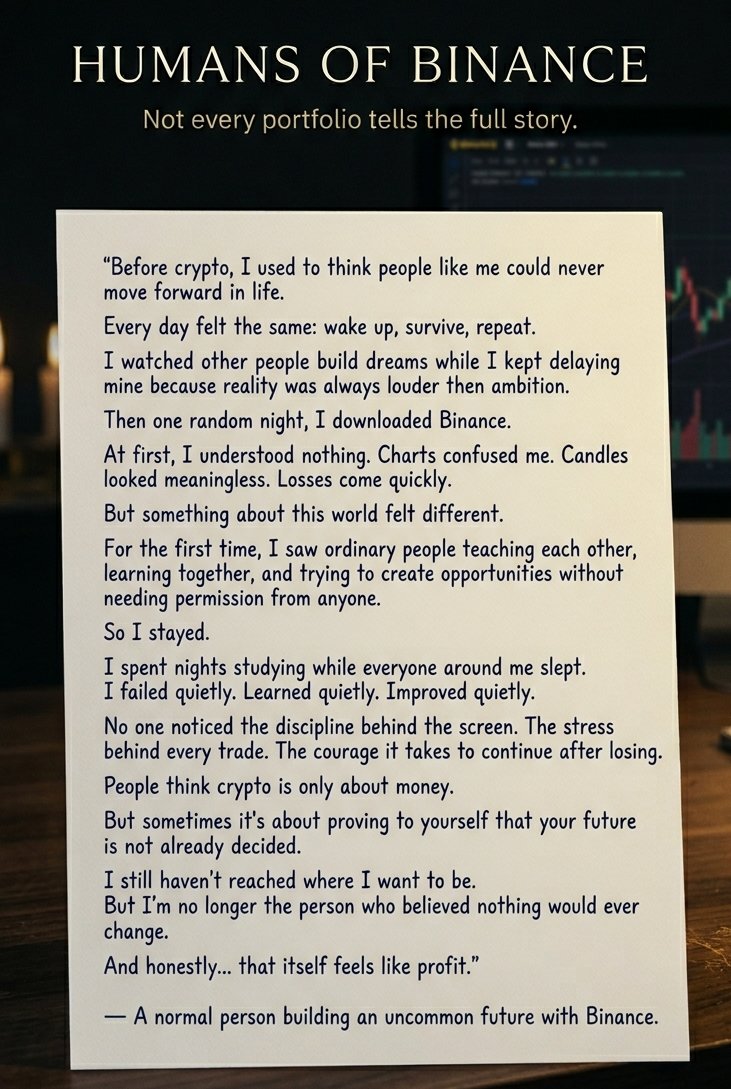 HUMANS OF BINANCE
Not every portfolio tells the full story.
“Before crypto, I used to think people like me could never
move forward in life.
Every day felt the same: wake up, survive, repeat.
I watched other people build dreams while I kept delaying
mine because reality was always louder then ambition.
Then one random night, I downloaded Binance.
At first, I understood nothing. Charts confused me. Candles
looked meaningless. Losses come quickly.
But something about this world felt different.
For the first time, I saw ordinary people teaching each other,
learning together, and trying to create opportunities without
needing permission from anyone.
So I stayed.
I spent nights studying while everyone around me slept.
I failed quietly. Learned quietly. Improved quietly.
No one noticed the discipline behind the screen. The stress
behind every trade. The courage it takes to continue after losing.
People think crypto is only about money.
But sometimes it's about proving to yourself that your future
is not already decided.
I still haven’t reached where I want to be.
But I’m no longer the person who believed nothing would ever
change.
And honestly... that itself feels like profit.”
— A normal person building an uncommon future with Binance.